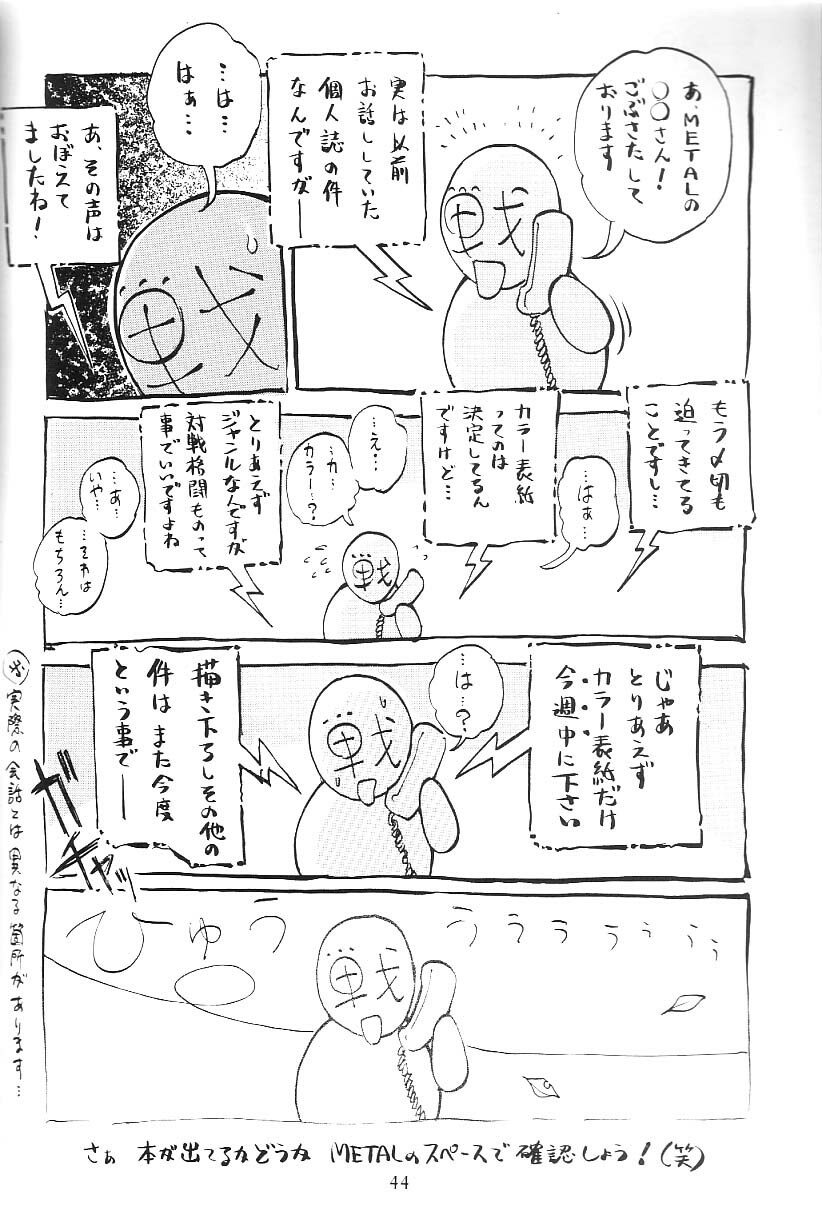 あ、METALの
○○さん!
ごぶさたして
おります
実は以前
お話ししていた
個人誌の件
なんですがー
…は…
はぁ…
あ、その声は
おぼえて
ましたね!
もう〆切も
迫ってきてる
ことですし…
…はぁ…
カラー表紙
ってのは
決定してるん
ですけど…
…え…
…カ…
カラー…?
とりあえず
ジャンルなんですが
対戦格闘ものって
事でいいですよね
…あ…
いや…
…それは
もちろん…
じゃあ
とりあえず
カラー表紙だけ
今週中に下さい
…は…?
描き下ろしその他の
件はまた今度
という事でー
ガチャッ
ひゅうううううううう
戦
戦
戦
戦
戦
※実際の会話とは異なる箇所があります…
さぁ 本が出てるかどうか METALのスペースで確認しよう!(笑)
44